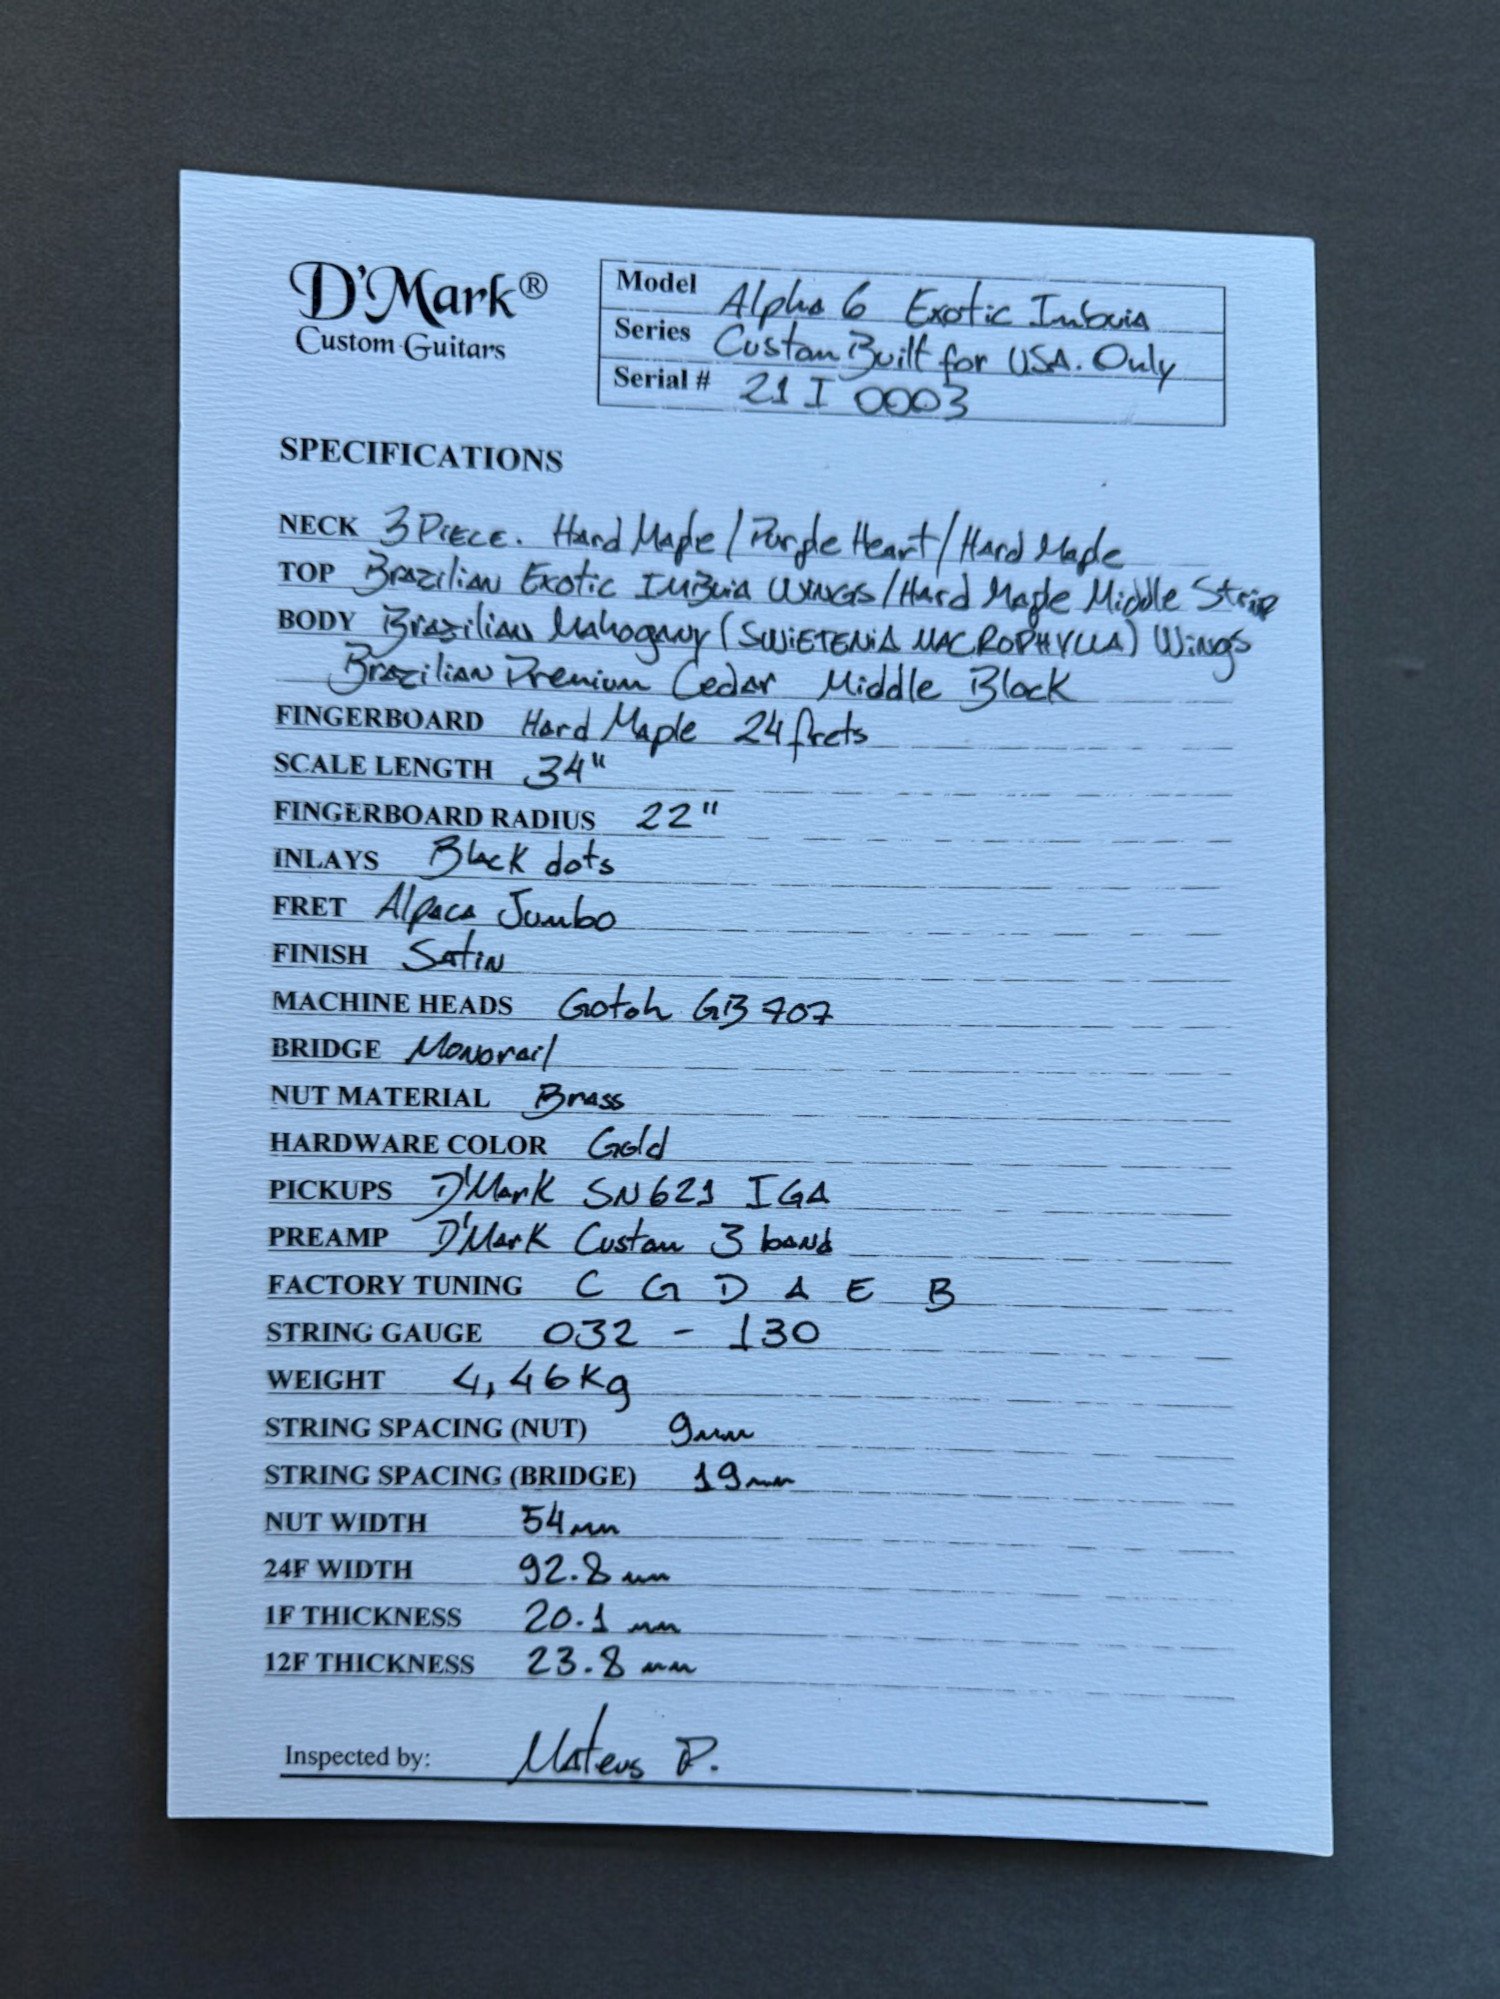 D'Mark®
Custom Guitars
Model Alpha 6 Exotic Imbuia
Series Custom Built for USA. Only
Serial # 21 I 0003
SPECIFICATIONS
NECK 3 PIECE. Hard Maple / Purple Heart / Hard Maple
TOP Brazilian Exotic IMBuia WINGS / Hard Maple Middle Strip
BODY Brazilian Mahogany (SWIETENIA MACROPHYLLA) Wings
Brazilian Premium Cedar Middle Block
FINGERBOARD Hard Maple 24 frets
SCALE LENGTH 34"
FINGERBOARD RADIUS 22"
INLAYS Black dots
FRET Alpaca Jumbo
FINISH Satin
MACHINE HEADS Gotoh GB 707
BRIDGE Monorail
NUT MATERIAL Brass
HARDWARE COLOR Gold
PICKUPS D'Mark SN621 IGA
PREAMP D'Mark Custom 3 band
FACTORY TUNING C G D A E B
STRING GAUGE 032 - 130
WEIGHT 4,46Kg
STRING SPACING (NUT) 9mm
STRING SPACING (BRIDGE) 19mm
NUT WIDTH 54mm
24F WIDTH 92.8 mm
1F THICKNESS 20.1 mm
12F THICKNESS 23.8 mm
Inspected by: Mateus P.